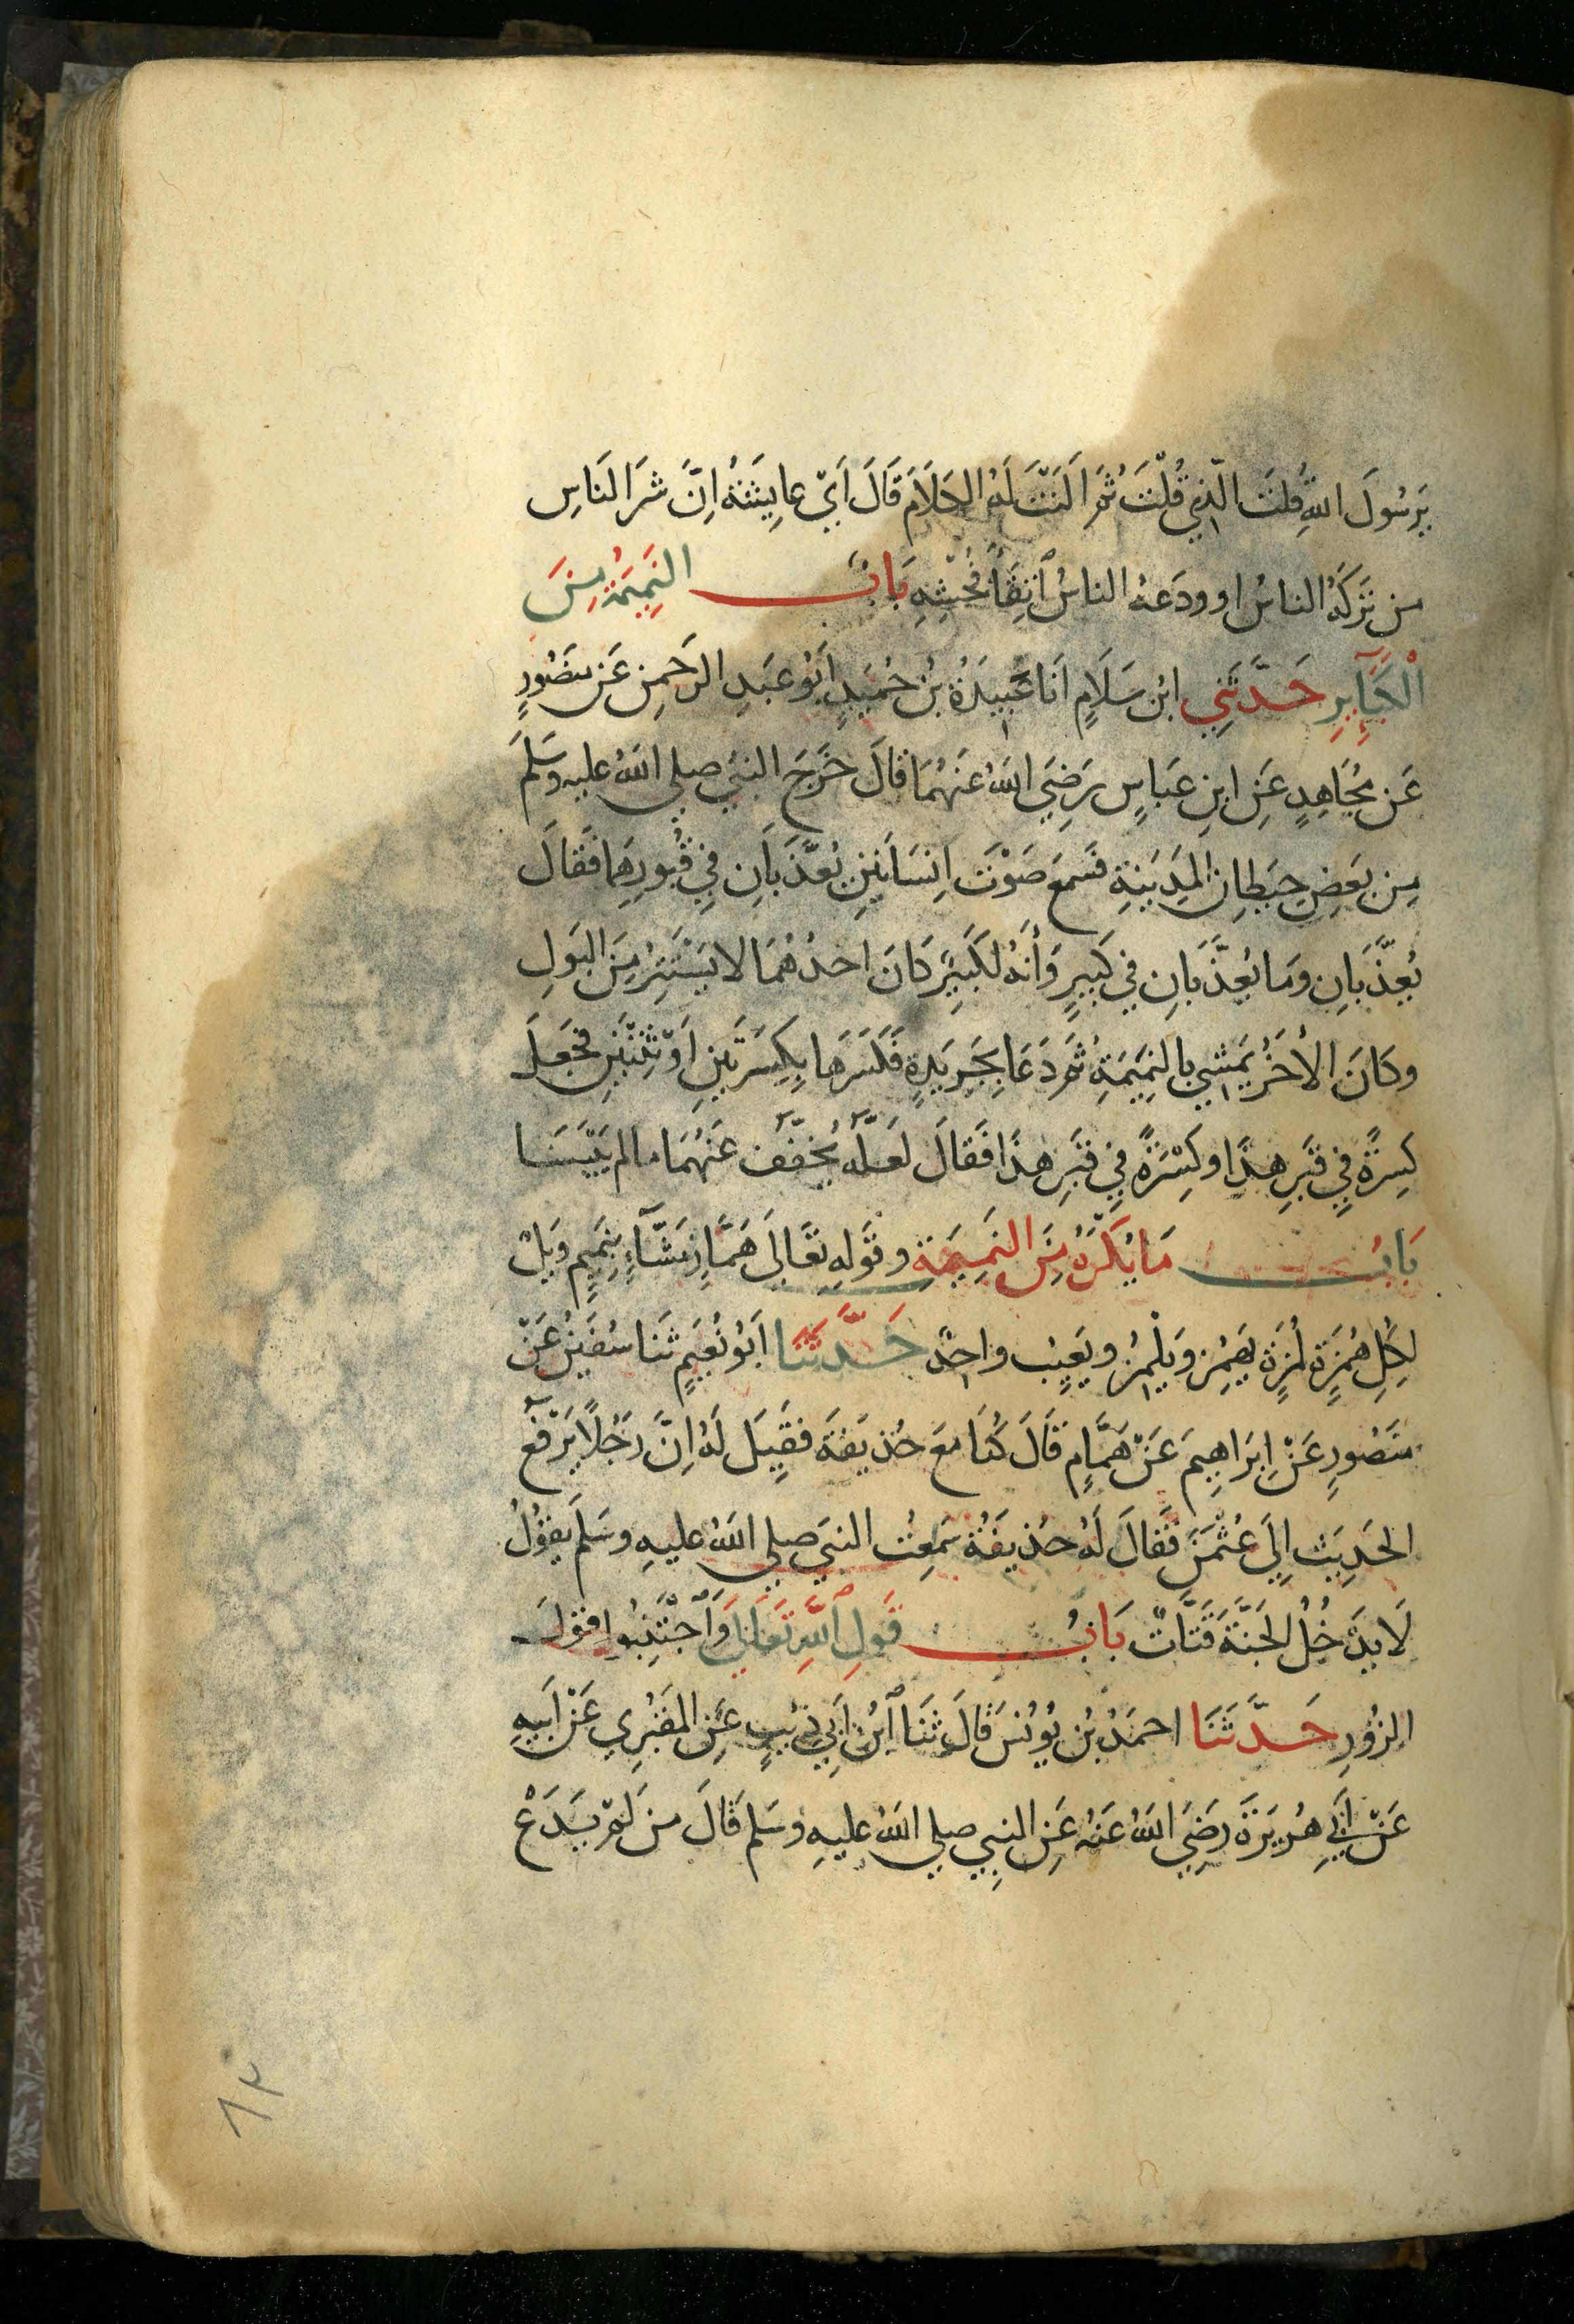 يَرسُولَ اللهِ قُلتَ الَّذِي قُلْتَ ثُمَّ اَلَنْتَ لَهُ الكَلَامَ قَالَ اَيْ عايِشَةُ اِنَّ شَرَ الناسِ
من تَرَكَهُ الناسُ او ودَعهُ الناسُ اتِقَاءَ فُحْشِهِ بَابُ النَمِيمَةُ مِنَ
الْكَبَآئِرِ حَدَّثَنِي ابن سَلَامٍ اَنَا عَبِيدَةُ بنُ حُمَيدٍ اَبُو عَبدِ الرَحمنِ عَن مَنصُورٍ
عَن مُجَاهِدٍ عَنِ ابنِ عَباسٍ رَضِيَ اللهُ عَنهُمَا قالَ خَرَجَ النبي صلي اللهُ عليه وسَلَّمَ
مِن بَعضِ حِيطانِ المَدِينةِ فسَمعَ صَوْتَ اِنسَانَينِ يُعَذَّبَانِ فِي قُبُورِهِمَا فَقالَ
يُعَذَّبَانِ ومَا يُعَذَّبَانِ فِي كَبِيرٍ وَاَنَهُ لَكَبِيرٌ كانَ احدُهُمَا لا يَسْتَتِرُ مِنَ البَولِ
وكانَ الأخَرُ يَمشِي بالنمِيمَةِ ثُمَ دَعَا بِجَرِيدَةٍ فَكَسَرَهَا بِكِسرَتَينِ اَوْ ثِنْتَينِ فجَعَلَ
كِسرَةً فِي قَبرِ هذَا وكِسْرَةً فِي قَبرِ هذَا فَقالَ لَعَلَّهُ يُخَفَّفُ عَنهُمَا ما لم يَيْبَسَا
بَابُ مَا يُكرَهُ مِنَ النمِيمَةِ وقَولِهِ تَعَالَى هَمَّازٍ مَشَّآءٍ بِنَمِيمٍ وَيلٌ
لِكُلِ هُمَزَةٍ لُمَزَةٍ يَهمِزُ ويَلْمِزُ ويَعيِبُ واحِدٌ حَدَّثَنَا اَبُو نُعَيمٍ ثَنا سُفيَنُ عَنْ
مَنصُورٍ عَنْ اِبرَاهِيمَ عَنْ هَمَّامٍ قَالَ كُنا معَ حُذيفَةَ فقِيلَ لَهُ اِنَّ رَجُلًا يَرْفَعُ
الحَدِيثَ اِلَى عُثْمَنَ فَقالَ لَهُ حُذيفَةُ سَمِعتُ النبيَ صلي اللهُ عليهِ وسَلَمَ يقُولُ
لَا يَدْخُلُ الجَنَّةَ قَتَّاتٌ بَابُ قَولِ اللهِ تَعَالَى وَاجْتَنِبُوا قَولَ
الزُورِ حَدَّثَنَا احمَدُ بن يُونُسَ قالَ ثَنَا ابنُ اَبي ذِئبٍ عَنِ المَقبُرِي عَنْ اَبِيهِ
عَنْ اَبِي هُرَيرَةَ رَضِيَ اللهُ عَنهُ عَنِ النبِي صلي اللهُ عليهِ وسَلم قالَ مَن لَمْ يَدَعْ